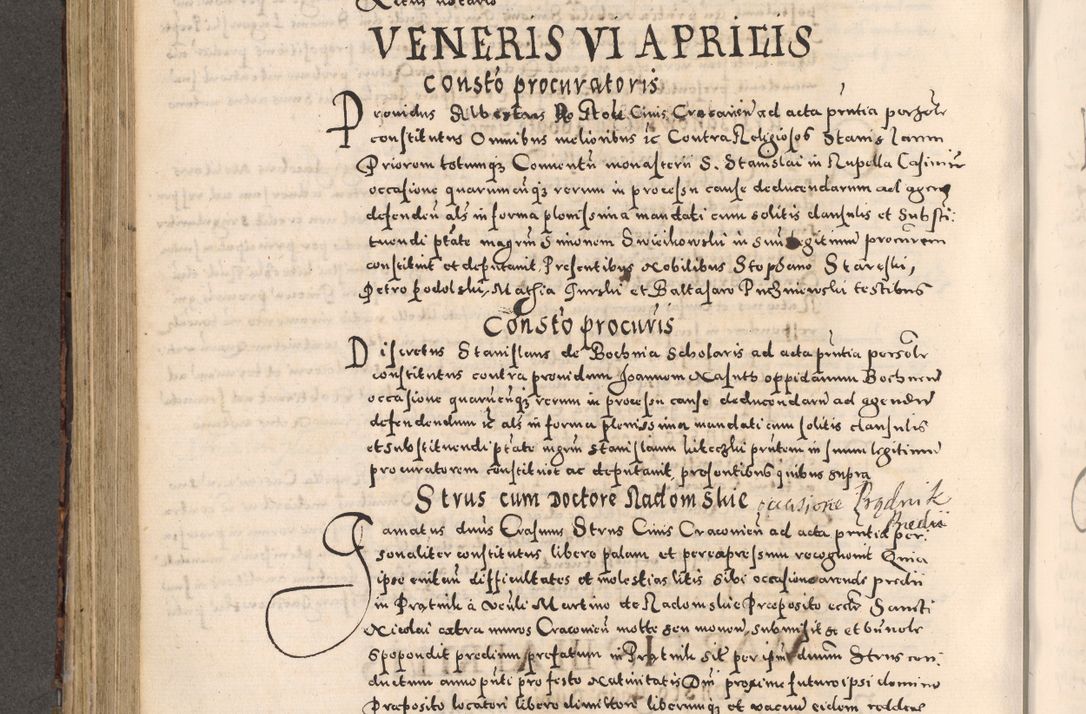 Actus notario
VENERIS VI APRILIS
Constō procuratoris
Providus Silvester Ro Stok Civis Cracovien ad acta pn̄tia personlr
constitutus Omnibus melioribus ic Contra Religiosos Stanislaum
Priorem totumqz Conventū monasterii S. Stanislai in Rupella Casimir
occasione quarumcūqz rerum in processu cause deducendarum ad agenḡ
defendeñ als in forma plenissima mandati cum solitis clausulis et Substi:
tuendi ptāte magrūm Simonem Swiechowski in suū legitimū procurem
constituit et deputavit. Presentibus Nobilibus Stephano Stareski,
Petro podolski, Mathia Gurski et Baltasaro Puchniewski testibus
Constō procuris
Discretus Stanislaus de Bochnia Scholaris ad acta pn̄tia personlr
constitutus contra providum Joannem oppidanum Bochnen
occasione quarūcūqz rerum in processu cause deducendarū ad agendū
defendendum ic als in forma plenissima mandati cum solitis clausulis
et substituendi ptāte mgrm Stanislaum pn̄tem in suum legitimū
procuratorem constituit ac deputavit presentibus quibus supra
Strus cum Doctore Radomskie occasione Prądnik
Predii
Famatus dnūs Erasmus Strus Civis Cracovien ad acta pn̄tia per:
sonaliter constitutus libero palam et per expressum recognovit Quia
ipse evitan difficultates et molestias litis sibi occasione arende predii
in Prątnik a Venli Martino de Radomskie Preposito eccle Sancti
Nicolai extra muros Cracovien motte seu movem submisit se et bnvole
spopondit predium prefatum in Prątnik sit per ipsū dnum Strus con:
ductum anno pn̄ti pro festo Nativitatis Dnī proxime futuro ipsi domino
Preposito locatori libero dimittere liberumqz et vacuū eidem reddere